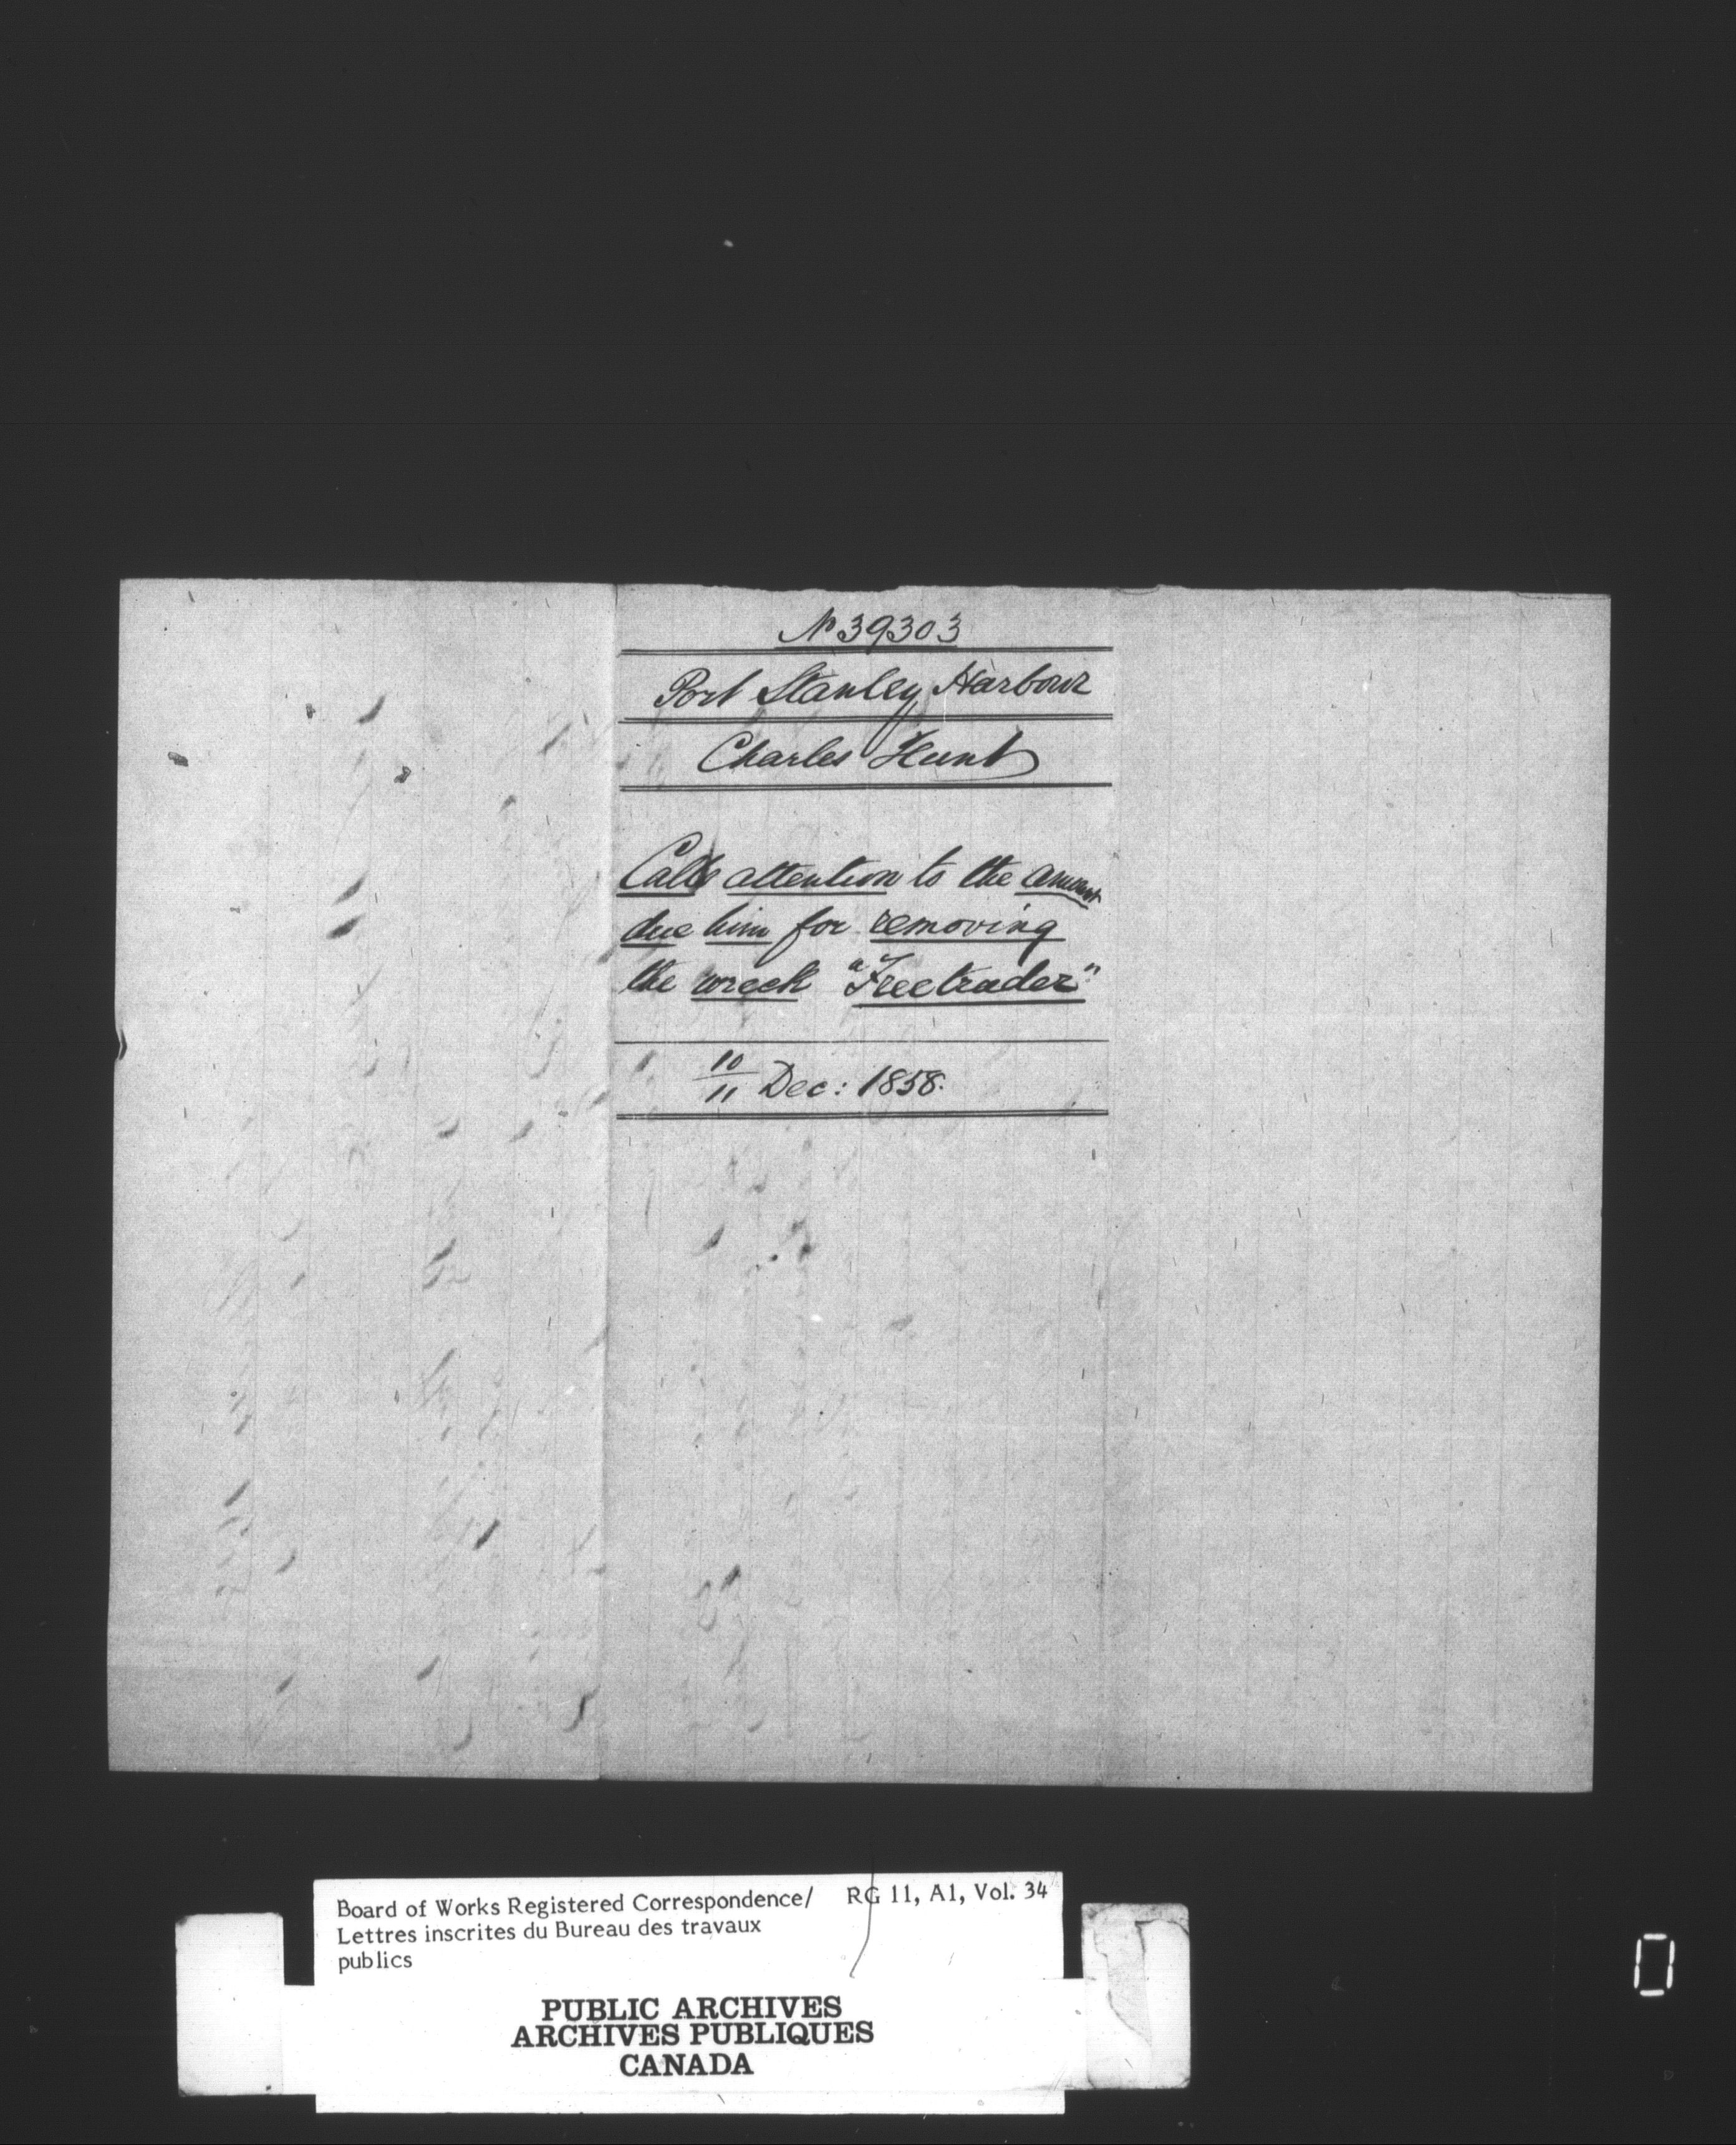 No 39303
Port Stanley Harbour
Charles Hunt
Calls attention to the amount
due him for removing
the wreck "Freetrader"
10/11 Dec: 1858.
Board of Works Registered Correspondence/ RG 11, A1, Vol. 34
Lettres inscrites du Bureau des travaux
publics
PUBLIC ARCHIVES
ARCHIVES PUBLIQUES
CANADA
0